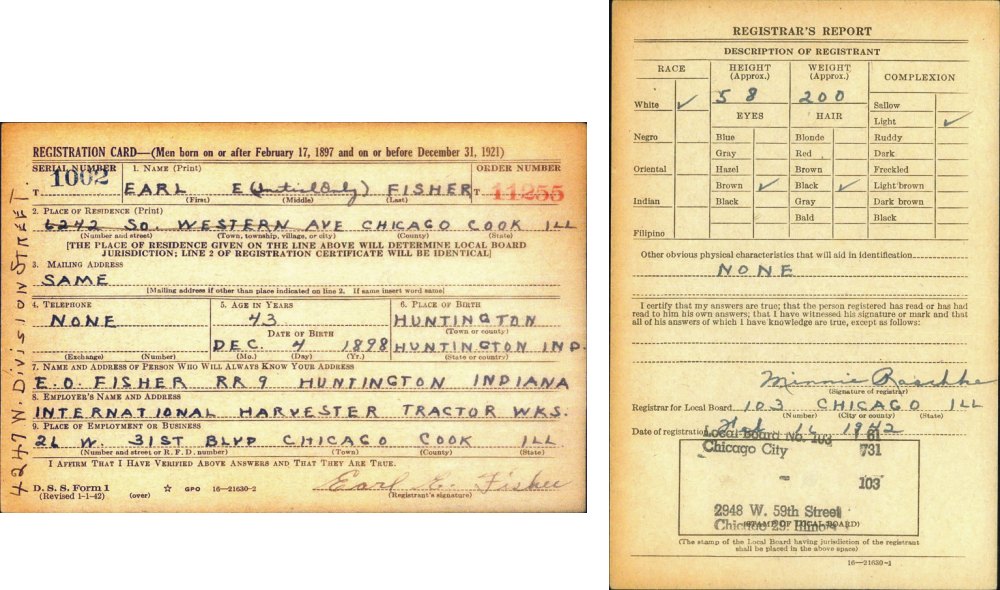 REGISTRATION CARD—(Men born on or after February 17, 1897 and on or before December 31, 1921)
SERIAL NUMBER 1. NAME (Print) ORDER NUMBER
T 1002 EARL E (Initial Only) FISHER T 11255
(First) (Middle) (Last)
2. PLACE OF RESIDENCE (Print)
6242 SO. WESTERN AVE CHICAGO COOK ILL
(Number and street) (Town, township, village, or city) (County) (State)
[THE PLACE OF RESIDENCE GIVEN ON THE LINE ABOVE WILL DETERMINE LOCAL BOARD
JURISDICTION; LINE 2 OF REGISTRATION CERTIFICATE WILL BE IDENTICAL]
3. MAILING ADDRESS
SAME
[Mailing address if other than place indicated on line 2. If same insert word same]
4. TELEPHONE 5. AGE IN YEARS 6. PLACE OF BIRTH
NONE 43 HUNTINGTON
DATE OF BIRTH (Town or county)
DEC. 4 1898 HUNTINGTON IND.
(Exchange) (Number) (Mo.) (Day) (Yr.) (State or country)
7. NAME AND ADDRESS OF PERSON WHO WILL ALWAYS KNOW YOUR ADDRESS
E.O. FISHER RR 9 HUNTINGTON INDIANA
8. EMPLOYER'S NAME AND ADDRESS
INTERNATIONAL HARVESTER TRACTOR WKS.
9. PLACE OF EMPLOYMENT OR BUSINESS
26 W. 31ST BLVD CHICAGO COOK ILL
(Number and street or R. F. D. number) (Town) (County) (State)
I AFFIRM THAT I HAVE VERIFIED ABOVE ANSWERS AND THAT THEY ARE TRUE.
D. S. S. Form 1
(Revised 1-1-42) (over) GPO 16—21630-2 Earl E. Fisher
(Registrant's signature)
4247 W. DIVISION STREET.
REGISTRAR'S REPORT
DESCRIPTION OF REGISTRANT
RACE HEIGHT (Approx.) WEIGHT (Approx.) COMPLEXION
White ✓ 5 8 200 Sallow
EYES HAIR Light ✓
Negro Blue Blonde Ruddy
Gray Red Dark
Oriental Hazel Brown Freckled
Brown ✓ Black ✓ Light brown
Indian Black Gray Dark brown
Bald Black
Filipino
Other obvious physical characteristics that will aid in identification
NONE
I certify that my answers are true; that the person registered has read or has had
read to him his own answers; that I have witnessed his signature or mark and that
all of his answers of which I have knowledge are true, except as follows:
Minnie Raschke
(Signature of registrar)
Registrar for Local Board 103 CHICAGO ILL
(Number) (City or county) (State)
Date of registration Feb 16 1942
Local Board No. 103 61
Chicago City 731
- 103
2948 W. 59th Street
Chicago 29, Illinois
(STAMP OF LOCAL BOARD)
(The stamp of the Local Board having jurisdiction of the registrant
shall be placed in the above space)
16—21630-1